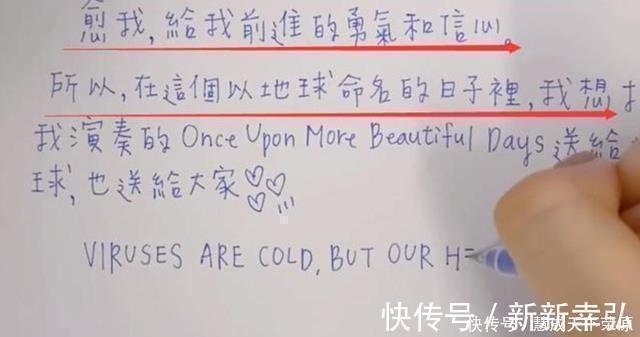 愈我,給我前進的勇氣和信心。
所以,在這個以地球命名的日子裡,我想
我演奏的 Once Upon More Beautiful Days 送給
球,也送給大家♡♡♡
VIRUSES ARE COLD, BUT OUR H
快传号/新新幸弘
快传号/